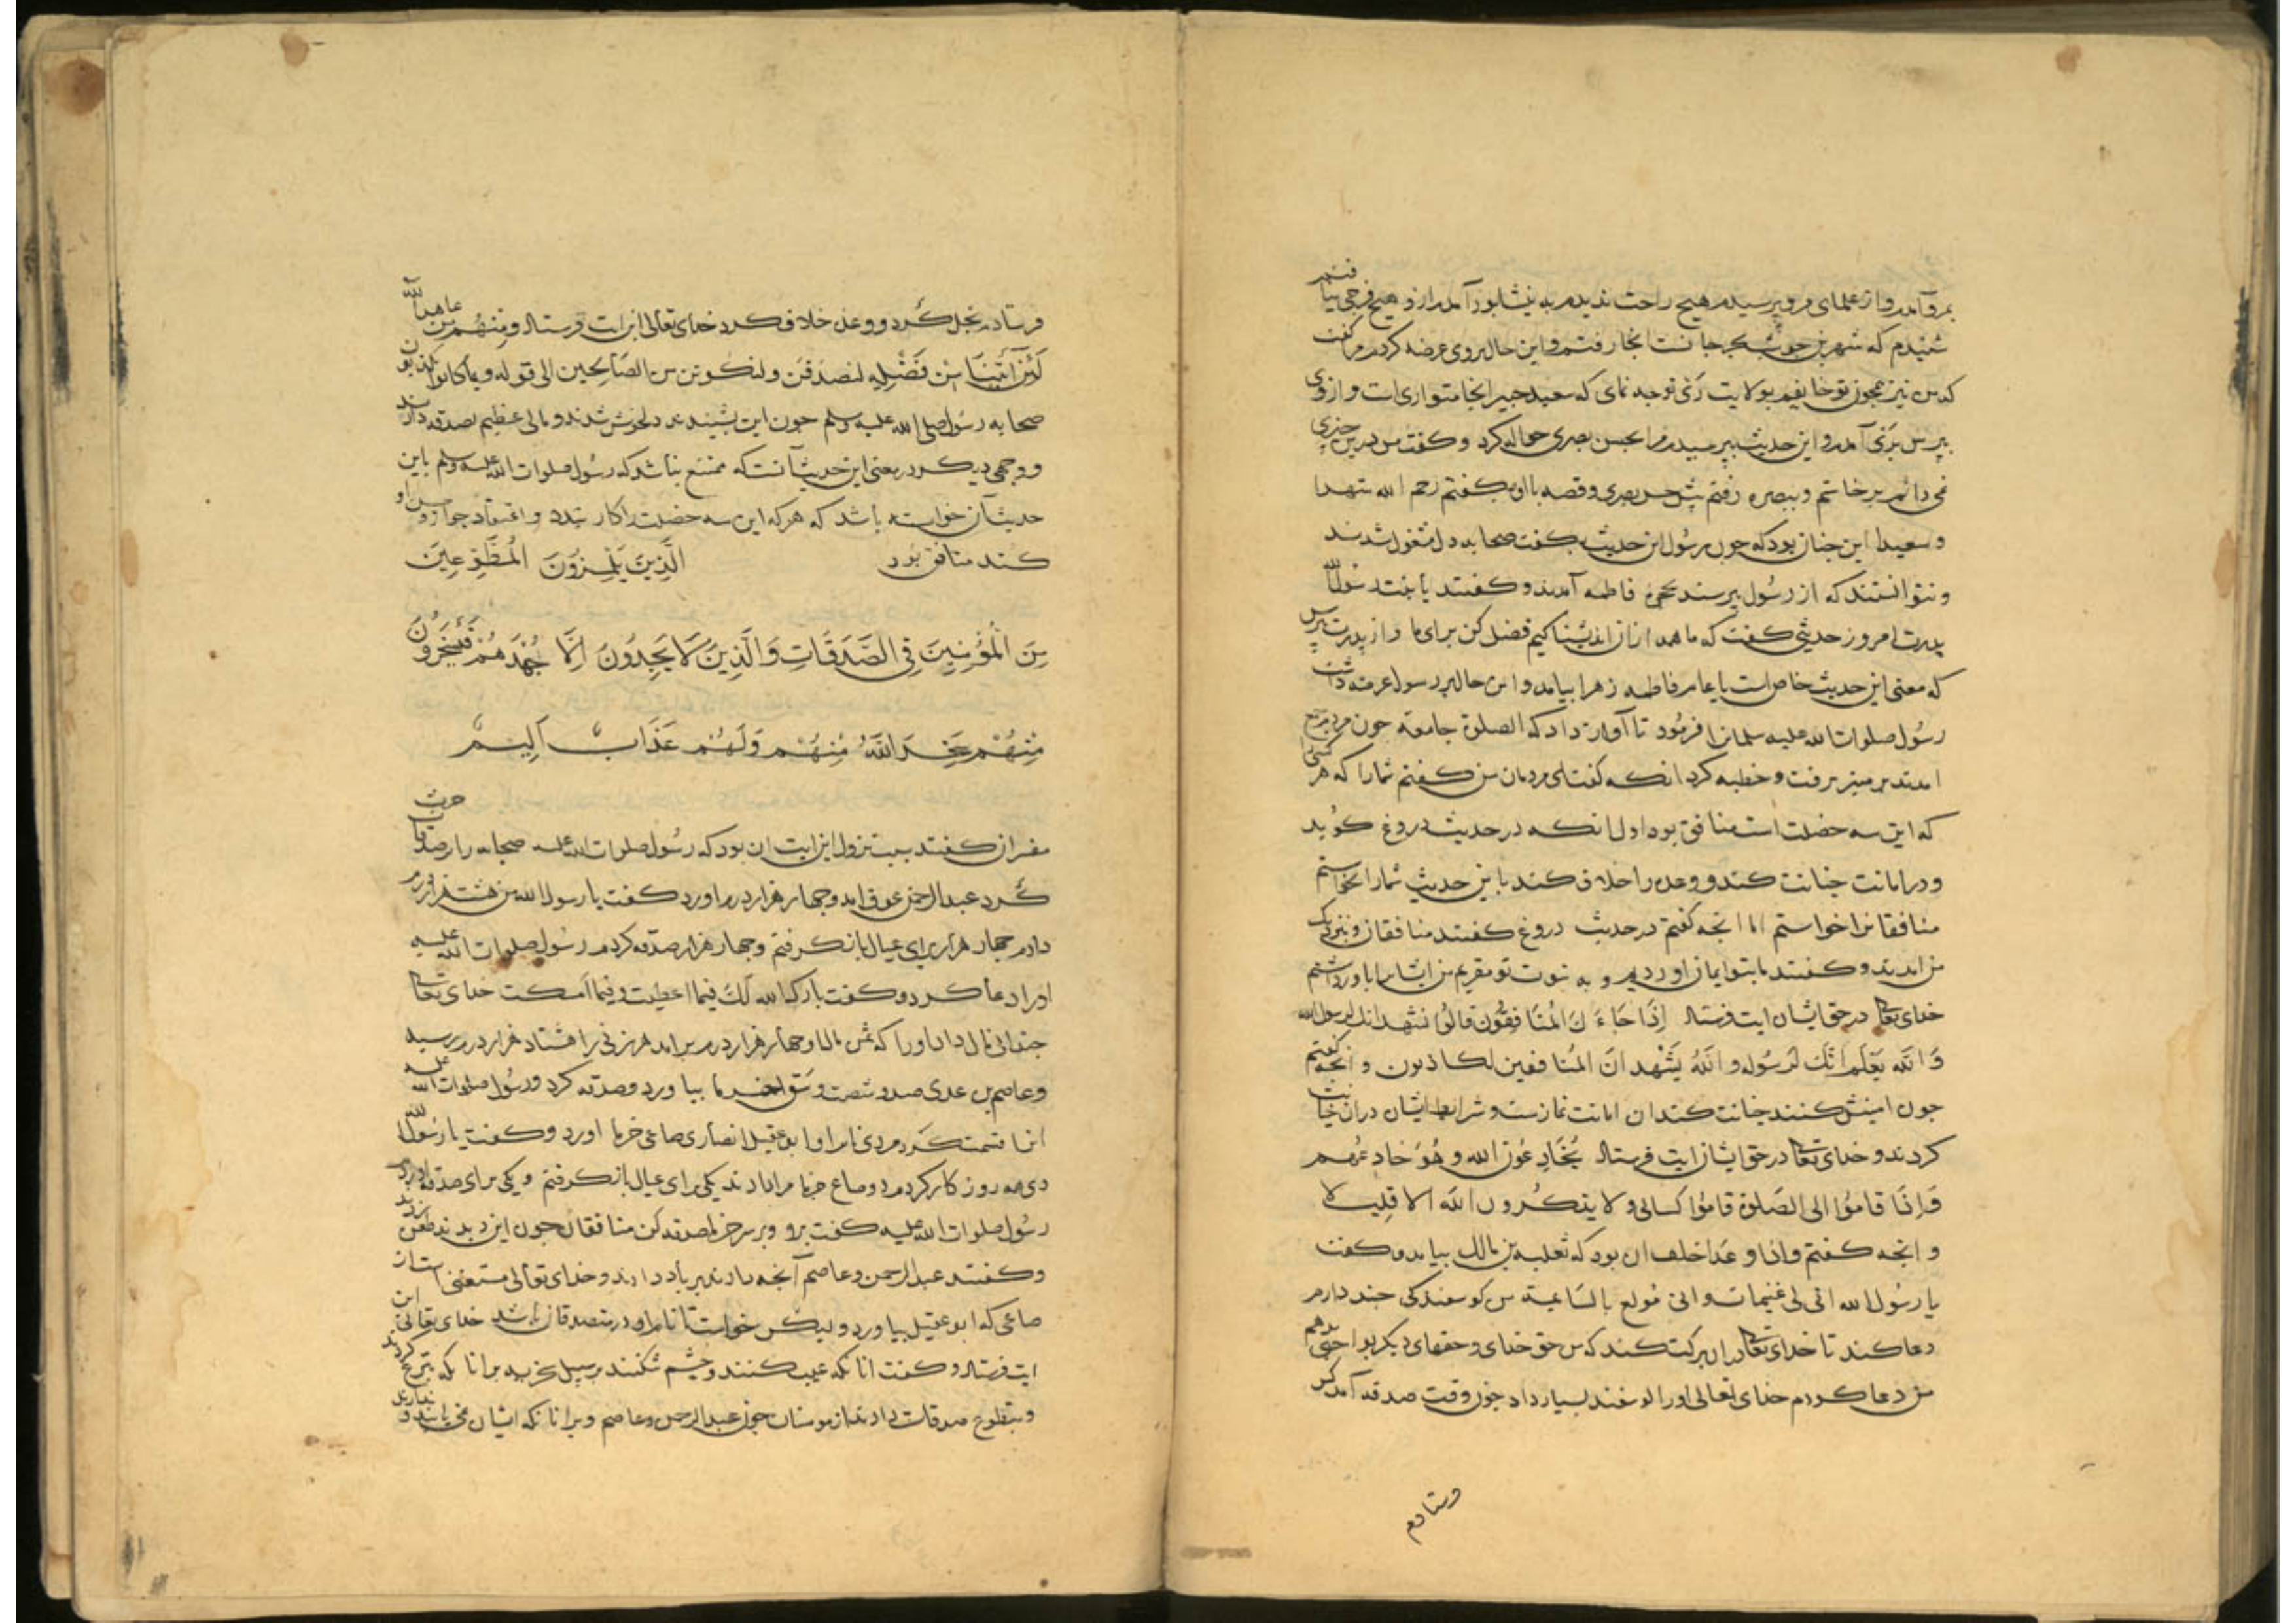 بمرو آمدم و از علمای مرو پرسیدم هیچ راحت ندیدم به نیشابور آمدم ازو هیچ فرجی نیافتم
شنیدم که شهر بن حوشب بجا نست انجا رفتم و این حال بروی عرضه کردم مرا کفت
که من نیز همجون تو خایفم بولایت ری توجه نمای که سعید جبیر انجا متواری است و از وی
بپرس بری آمدم و این حدیث بپرسیدم مرا بحسن بصری حواله کرد و کفت من درین جیزی
نمی دانم برخاستم و ببصره رفتم پیش حسن بصری و قصه با او بکفتم رحم الله شهرا
و سعیدا این جنان بود که جون رسول این حدیث بکفت صحابه دل مشغول شدند
و نتوانستند که از رسول بپرسند بحجره فاطمه آمدند و کفتند یا بنت رسول الله
پدرت امروز حدیثی کفت که ما همه از ان اندیشناکیم فضل کن برای ما و از پدرت بپرس
که معنی این حدیث خاص است یا عام فاطمه زهرا بیامد و این حال بر رسول عرضه داشت
رسول صلوات الله علیه سلمانرا فرمود تا آواز داد که الصلوة جامعة جون مردم جمع
امدند بر منبر رفت و خطبه کرد انکه کفت ای مردمان من کفتم شما را که هر کسی را
که این سه خصلت است منافق بود اول انکه در حدیث دروغ کوید
و در امانت خیانت کند و وعده را خلاف کند باین حدیث شما را نخواستم
منافقانرا خواستم اما انجه کفتم در حدیث دروغ کفتند منافقان و بنزدیک
من امدند و کفتند ما بتو ایمان اوردیم و به نبوت تو مقریم من ایشانرا باور داشتم
خدای تعالی در حق ایشان ایت فرستاد إذا جاءك المنافقون قالوا نشهد انك لرسول الله
والله یعلم انك لرسوله والله یشهد ان المنافقین لکاذبون و انجه کفتم
جون امینش کنند خیانت کند ان امانت نمازست و شرایط ایشان دران خیانت
کردند و خدای تعالی در حق ایشان ایت فرستاد یخادعون الله وهو خادعهم
واذا قاموا الی الصلوة قاموا کسالی ولا یذکرون الله الا قلیلا
و انجه کفتم واذا وعد اخلف ان بود که ثعلبه بن مالك بیامد و کفت
یا رسول الله ان لی غنیمات وانی مولع بالسایمة من کوسفندکی جند دارم
دعا کند تا خدای تعالی دران برکت کند که من حق خدای و حقهای دیکر بواجبی بدهم
من دعا کردم خدای تعالی اورا کوسفند بسیار داد جون وقت صدقه آمد کس
فرستادم
فرستادم بخل کرد و وعده خلاف کرد خدای تعالی این ایت فرستاد ومنهم من عاهد الله
لئن آتینا من فضله لنصدقن ولنکونن من الصالحین الی قوله وبما کانوا یکذبون
صحابه رسول صلی الله علیه وسلم جون این بشنیدند دلخوش شدند و مالی عظیم بصدقه دادند
و وجهی دیکر در معنی این حدیث آنست که ممتنع نباشد که رسول صلوات الله علیه وسلم باین
حدیث آن خواسته باشد که هرکه این سه خصلت را کار بندد و اعتقاد جواز و حسن او
کند منافق بود الذین یلمزون المطوعین
من المؤمنین فی الصدقات والذین لا یجدون الا جهدهم فیسخرون
منهم سخر الله منهم ولهم عذاب الیم
مفسران کفتند سبب نزول این ایت ان بود که رسول صلوات الله علیه صحابه را بر صدقات حریث
کرد عبد الرحمن عوف امد و جهار هزار درم اورد کفت یا رسول الله من هشت هزار درم
دارم جهار هزار برای عیال بازکرفتم و جهار هزار صدقه کردم رسول صلوات الله علیه
اورا دعا کرد و کفت بارك الله لك فیما اعطیت وفیما امسکت خدای تعالی
جندانی مال داد اورا که ثمن مال او جهار هزار درم برامد هر زنی را هشتاد هزار درم رسید
و عاصم بن عدی صد و شصت وسق خرما بیاورد و صدقه کرد و رسول صلوات الله علیه
انرا قسمت کرد مردی نام او ابو عقیل انصاری صاعی خرما اورد و کفت یا رسول الله
دی همه روز کار کردم دو صاع خرما مرا دادند یکی برای عیال بازکرفتم و یکی برای صدقه اوردم
رسول صلوات الله علیه کفت برو و بر سر خرما صدقه کن منافقان جون این دیدند طعن زدند
و کفتند عبد الرحمن و عاصم آنجه دادند بریا دادند و خدای تعالی مستغنی است از
صاعی که ابو عقیل بیاورد ولیکن خواست تا نام او در متصدقان باشد خدای تعالی این
ایت فرستاد و کفت انانکه عیب کنند و جشم شکنند بر سبیل سخریه بر انانکه تبرع کردند
و بتطوع صدقات دادند از مومنان جون عبد الرحمن و عاصم و بر انانکه ایشان نمی یابند و ندارند